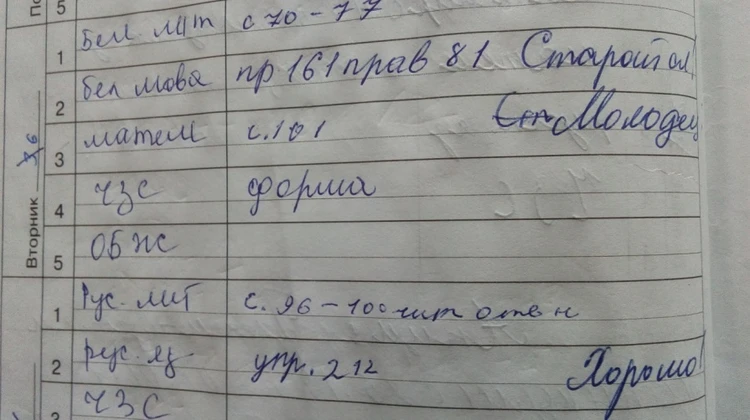 По
5
1 Бел лит с 70-77
2 бел мова пр 161 прав 81 Старайся
3 матем с.101 Молодец
4 ЧЗС форма
5 ОБЖС
Вторник 6
1 Рус. лит с. 96-100 чит отв н
2 рус. яз упр. 212 Хорошо!
3 ЧЗС